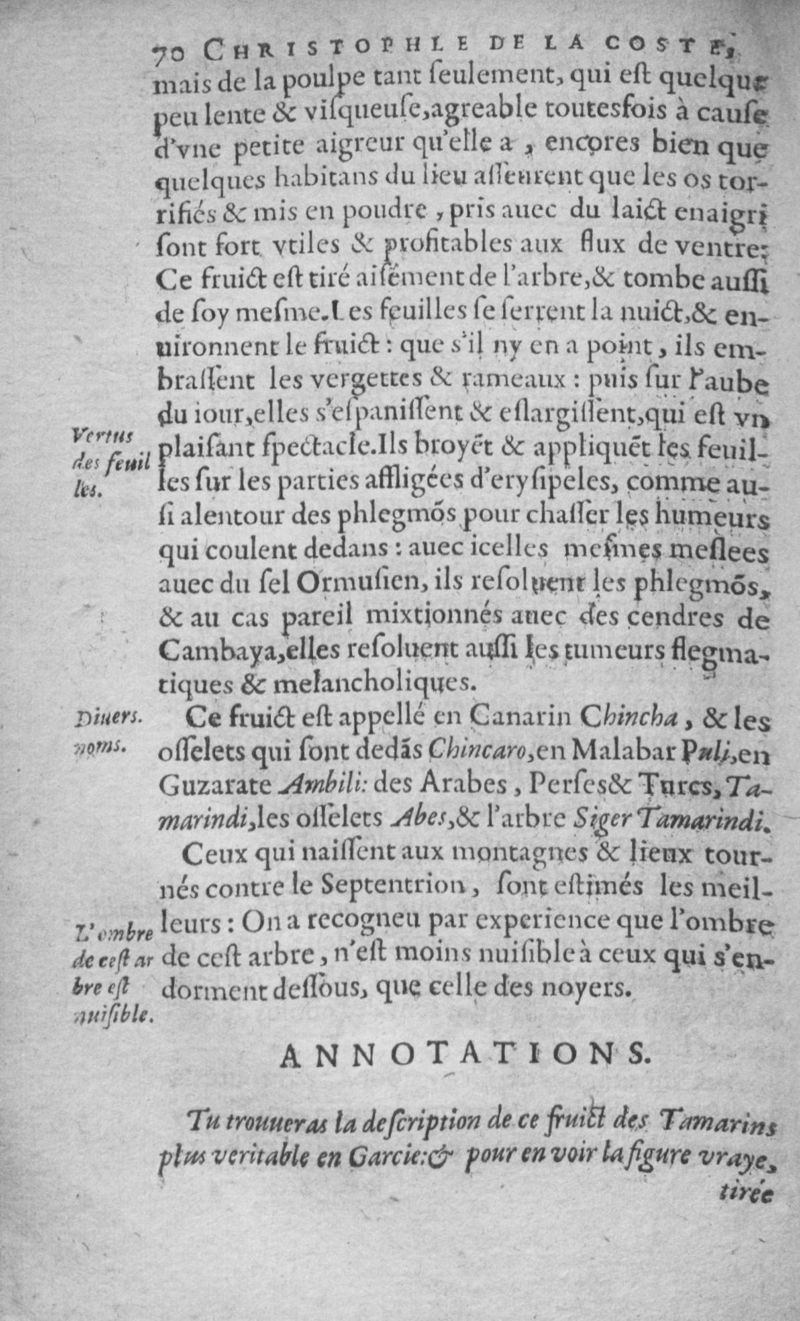 70 CHRISTOPHLE DE LA COSTE,
mais de la poulpe tant ſeulement, qui eſt quelque
peu lente & viſqueuſe,agreable toutesfois à cauſe
d'vne petite aigreur qu'elle a , encores bien que
quelques habitans du lieu aſſeurent que les os tor-
rifiés & mis en poudre , pris auec du laict enaigri
ſont fort vtiles & profitables aux flux de ventre:
Ce fruict eſt tiré aiſément de l'arbre,& tombe auſſi
de ſoy meſme.Les feuilles ſe ſerrent la nuict,& en-
uironnent le fruict : que s'il ny en a point , ils em-
braſſent les vergettes & rameaux : puis ſur l'aube
du iour,elles s'eſpaniſſent & eſlargiſſent,qui eſt vn
Vertus
des feuil
les.
plaiſant ſpectacle.Ils broyẽt & appliquẽt les feuil-
les ſur les parties affligées d'eryſipeles, comme au-
ſi alentour des phlegmõs pour chaſſer les humeurs
qui coulent dedans : auec icelles meſmes meſlees
auec du ſel Ormuſien, ils reſoluent les phlegmõs,
& au cas pareil mixtionnés auec des cendres de
Cambaya,elles reſoluent auſſi les tumeurs flegma-
tiques & melancholiques.
Diuers.
noms.
Ce fruict eſt appellé en Canarin Chincha , & les
oſſelets qui ſont dedãs Chincaro,en Malabar Puli,en
Guzarate Ambili: des Arabes , Perſes& Turcs, Ta-
marindi,les oſſelets Abes,& l'arbre Siger Tamarindi.
Ceux qui naiſſent aux montagnes & lieux tour-
nés contre le Septentrion , ſont eſtimés les meil-
L'ombre
de ceſt ar
bre eſt
nuiſible.
leurs : On a recogneu par experience que l'ombre
de ceſt arbre , n'eſt moins nuiſible à ceux qui s'en-
dorment deſſous, que celle des noyers.
ANNOTATIONS.
Tu trouueras la deſcription de ce fruict des Tamarins
plus veritable en Garcie:& pour en voir la figure vraye,
tirée